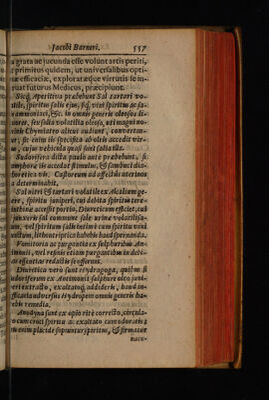 Jacobi Barneri. 557
grata ac jucunda esse volunt artis periti,
primitus quidem, ut universalibus opti-
mæ efficaciæ, exploratæque virtutis se in-
struat futurus Medicus, præcipiunt.
Sicq; Aperitiva præbebunt Sal tartari vo-
latile, spiritus salis ejus, sq; vini spiritus ac sa-
ammoniaci, &c. in omnis generis oleosos li-
quores, seu sulia volatilia oleosa, uti magni no-
minis Chymiatro alicui audiunt, convertun-
tur, sic enim eis specifica ab oleis accedit vir-
tus, cujus vehicula quasi sunt salia ista.
Sudorifera dicta paulo ante præbebunt, si
camphoræ iis accedat stimulus, & sambuci dia-
phoretica vis. Castoreum ad affectus uterinos
a determinabit.
Sal nitri & tartari volatile ex Alcalium ge-
nere, spiritus juniperi, cui debita spiritus tere-
binthinæ accessit portio, Diureticam efficiet, cui
junxeris sal commune sale urinæ volatilisa-
tum, vel spiritum salis intimè cum spiritu vini
unitum, lithontriptica habebis haud spernenda.
Vomitoria ac purgantia ex sulphuribus An-
timonii, vel resinis etiam purgantibus in deli-
cas essentias redactis se offerunt.
Diuretica verò sunt ex hydragoga, quibus si
sudoriferum ex Antimonii sulphure oleo juni-
peri extracto, exaltatoq; addideris, haud in-
efficacia adversus hydropem omnis generis ha-
bebis remedia.
Anodyna sunt ex opio ritè correcto, circula-
to cum cinei spiritu ac exaltato cum odoratis;
ita enim placide sopiuntur spiritus, & firmatur